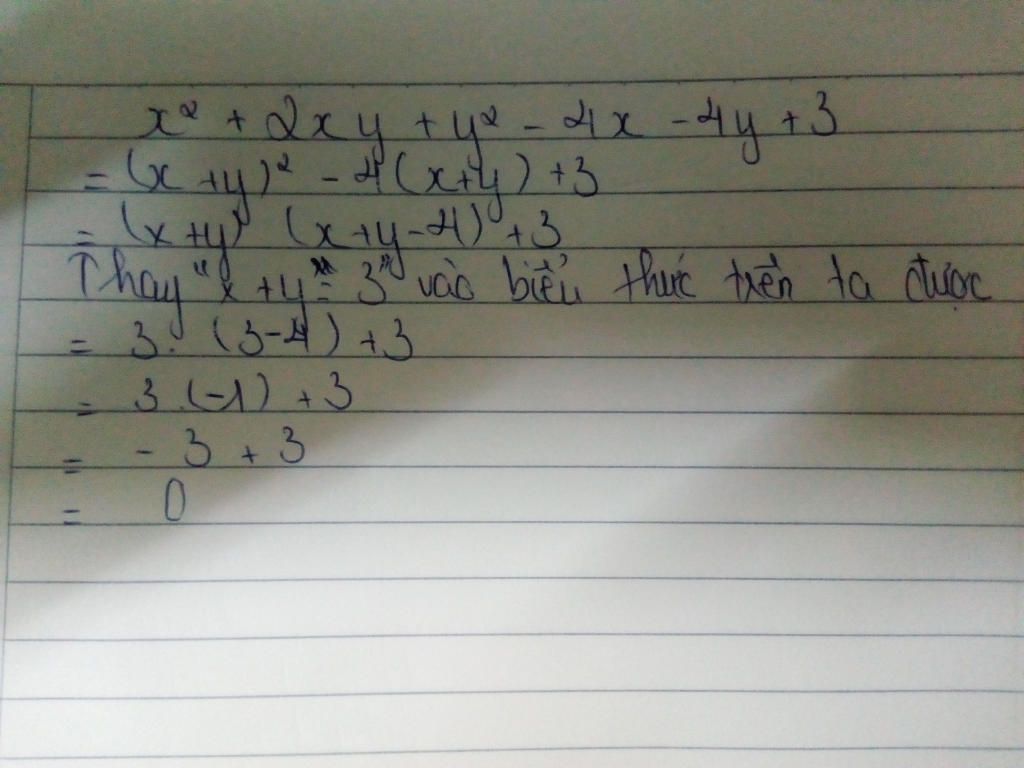 x² + 2xy + y² - 4x - 4y + 3
= (x + y)² - 4(x+y) + 3
= (x+y) (x+y-4) + 3
Thay "x + y = 3" vào biểu thức trên ta được
= 3. (3-4) + 3
= 3.(-1) + 3
= - 3 + 3
= 0